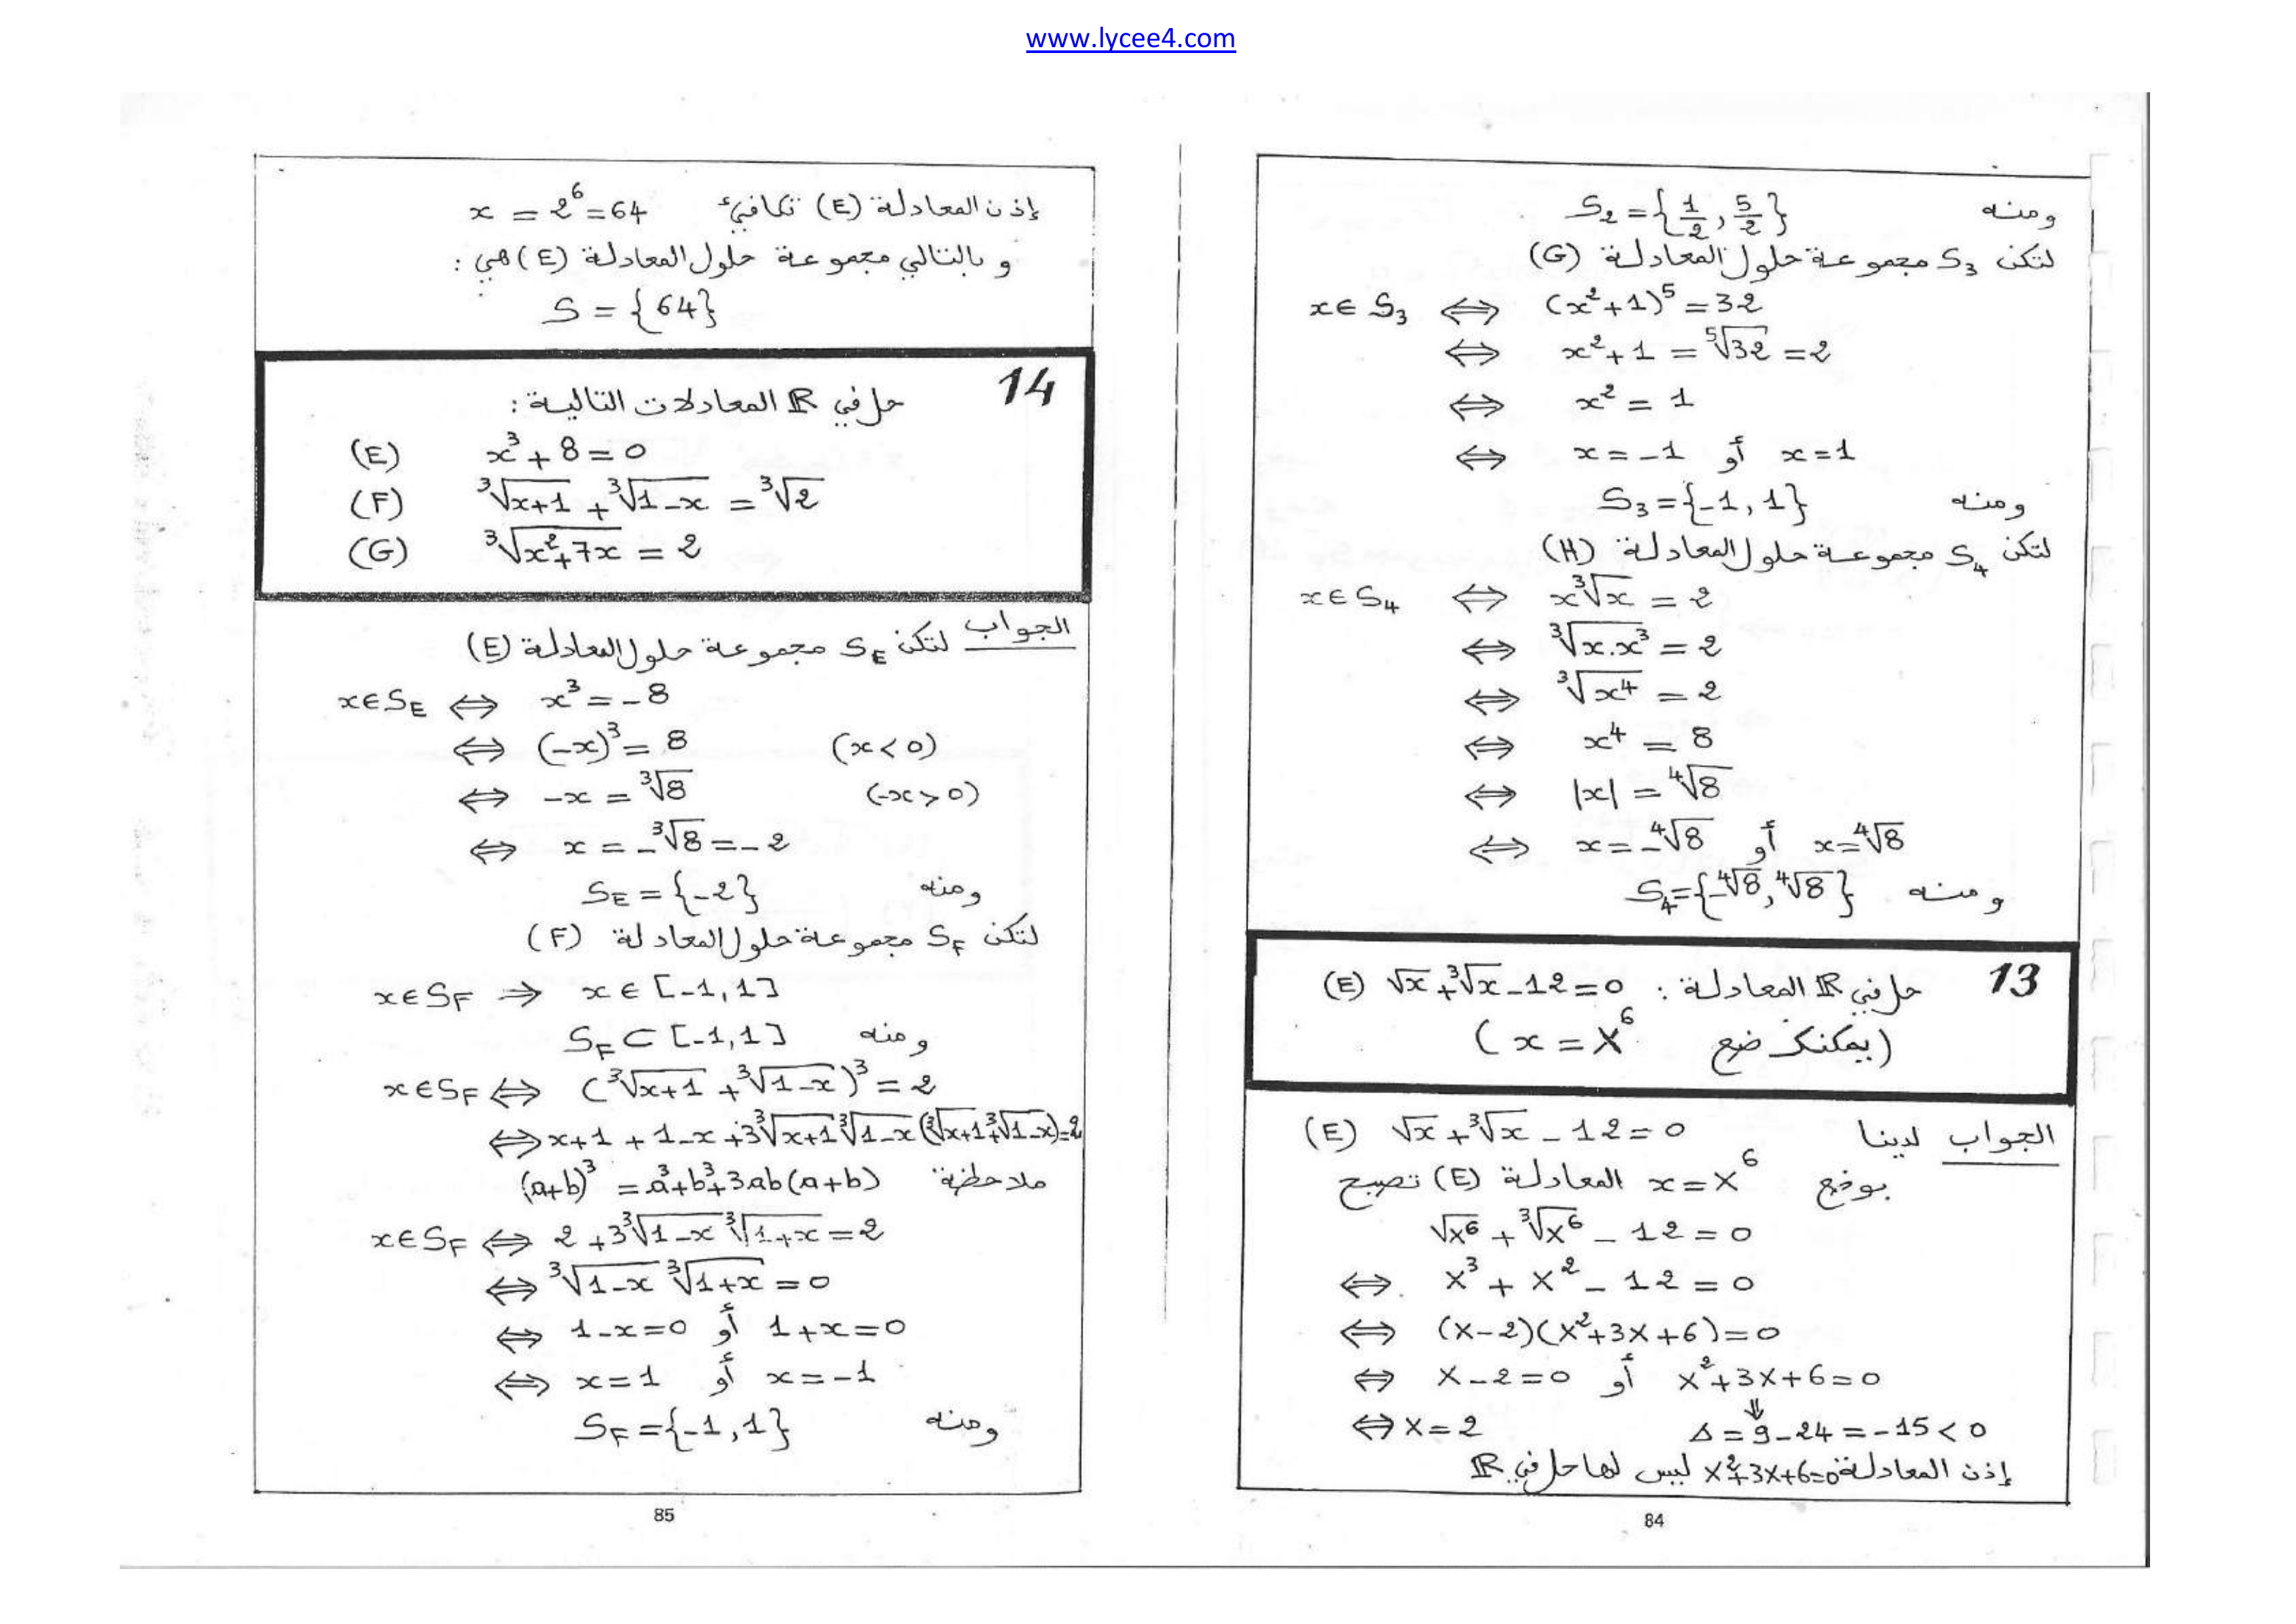 www.lycee4.com
ومنه S₂ = {1/2, 5/2}
لتكن S₃ مجموعة حلول المعادلة (G)
x ∈ S₃ ⇔ (x²+1)⁵ = 32
⇔ x²+1 = ⁵√32 = 2
⇔ x² = 1
⇔ x = -1 أو x = 1
ومنه S₃ = {-1, 1}
لتكن S₄ مجموعة حلول المعادلة (H)
x ∈ S₄ ⇔ x ³√x = 2
⇔ ³√(x.x³) = 2
⇔ ³√(x⁴) = 2
⇔ x⁴ = 8
⇔ |x| = ⁴√8
⇔ x = -⁴√8 أو x = ⁴√8
ومنه S₄ = {-⁴√8, ⁴√8}
13 حل في ℝ المعادلة : √x + ³√x - 12 = 0 (E)
(يمكنك ضع x = X⁶)
الجواب لدينا √x + ³√x - 12 = 0 (E)
بوضع x = X⁶ المعادلة (E) تصبح
√X⁶ + ³√X⁶ - 12 = 0
⇔ X³ + X² - 12 = 0
⇔ (X-2)(X²+3X+6) = 0
⇔ X-2 = 0 أو X²+3X+6 = 0
⇓
⇔ X = 2 Δ = 9-24 = -15 < 0
إذن المعادلة X²+3X+6=0 ليس لها حل في ℝ
84
إذن المعادلة (E) تكافئ x = 2⁶ = 64
و بالتالي مجموعة حلول المعادلة (E) هي :
S = {64}
14 حل في ℝ المعادلات التالية :
(E) x³ + 8 = 0
(F) ³√(x+1) + ³√(1-x) = ³√2
(G) ³√(x²+7x) = 2
الجواب لتكن S_E مجموعة حلول المعادلة (E)
x ∈ S_E ⇔ x³ = -8
⇔ (-x)³ = 8 (x < 0)
⇔ -x = ³√8 (-x > 0)
⇔ x = -³√8 = -2
ومنه S_E = {-2}
لتكن S_F مجموعة حلول المعادلة (F)
x ∈ S_F ⇒ x ∈ [-1, 1]
ومنه S_F ⊂ [-1, 1]
x ∈ S_F ⇔ (³√(x+1) + ³√(1-x))³ = 2
⇔ x+1 + 1-x + 3 ³√(x+1) ³√(1-x) (³√(x+1) + ³√(1-x)) = 2
ملاحظة (a+b)³ = a³+b³+3ab(a+b)
x ∈ S_F ⇔ 2 + 3 ³√(1-x) ³√(1+x) = 2
⇔ ³√(1-x) ³√(1+x) = 0
⇔ 1-x = 0 أو 1+x = 0
⇔ x = 1 أو x = -1
ومنه S_F = {-1, 1}
85